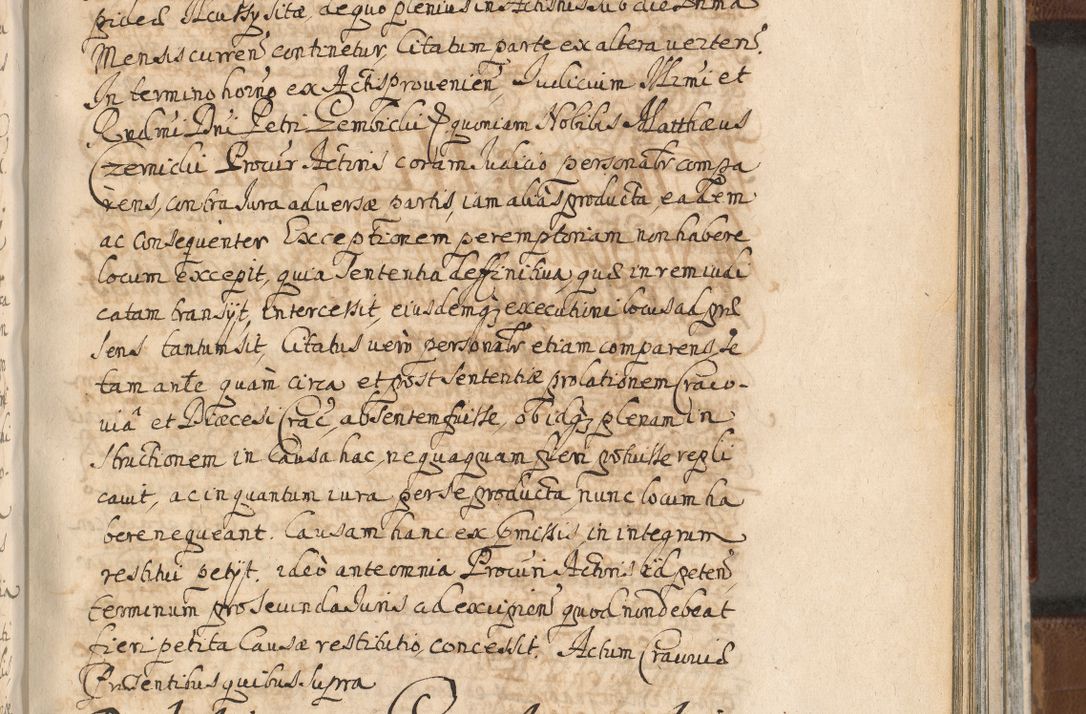 Mensis curren continetur, Citatum parte ex altera verten.
In termino horno ex Actis provenien, Judicium Illrmi et
Rndmi Dni Petri Gembicki Ep. quoniam Nobilis Matthæus
Czernicki Procur Actoris coram Judicio personalr compa
rens, contra Jura adversæ partis, iam aliàs producta, eadem
ac consequenter Exceptionem peremptoriam non habere
locum excepit, quia Sententia deffinitiva, quæ in rem iudi
catam transyt, intercessit, eiusdemq executioni locus ad præ
sens tantum sit, Citatus verò personalr etiam comparens, se
tam ante quàm circa et post Sententiæ prolationem Craco-
viâ et Diæcesi Crac, absentem fuisse, ob idq plenam in
structionem in Causa hac, nequaquam fieri potuisse repli
cavit, ac in quantum iura per se producta, nunc locum ha
bere nequeant. Causam hanc ex præmissis in integrum
restitui petyt. ideò ante omnia Procuri Actoris id peten,
terminum pro secunda Juris ad excipien quod non debeat
fieri petita Causæ restitutio, concessit. Actum Cracoviæ
Præsentibus quibus supra